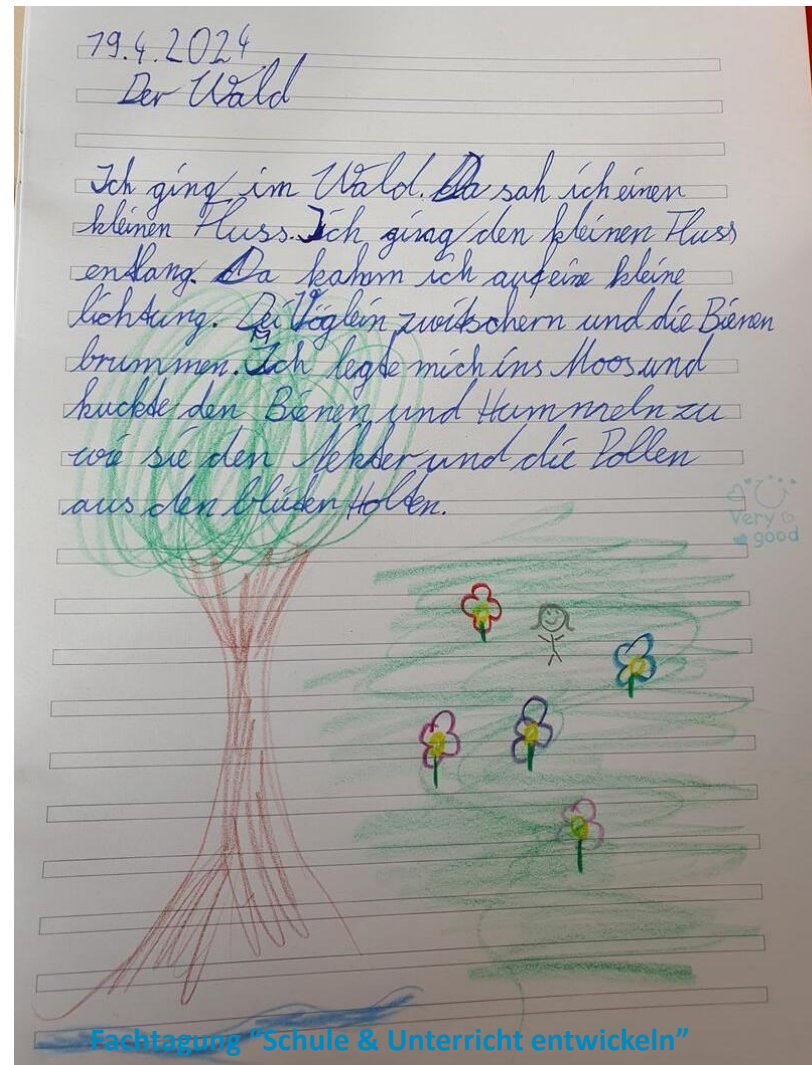 19.4.2024
Der Wald
Ich ging im Wald. Da sah ich einen
kleinen Fluss. Ich ging den kleinen Fluss
entlang. Da kahm ich auf eine kleine
lichtung. Dei Vöglein zwitschern und die Bienen
brummen. Ich legte mich ins Moos und
kuckte den Bienen und Hummeln zu
wie sie den Nekter und die Pollen
aus den blüten Holten.
Very
good
Fachtagung "Schule & Unterricht entwickeln"